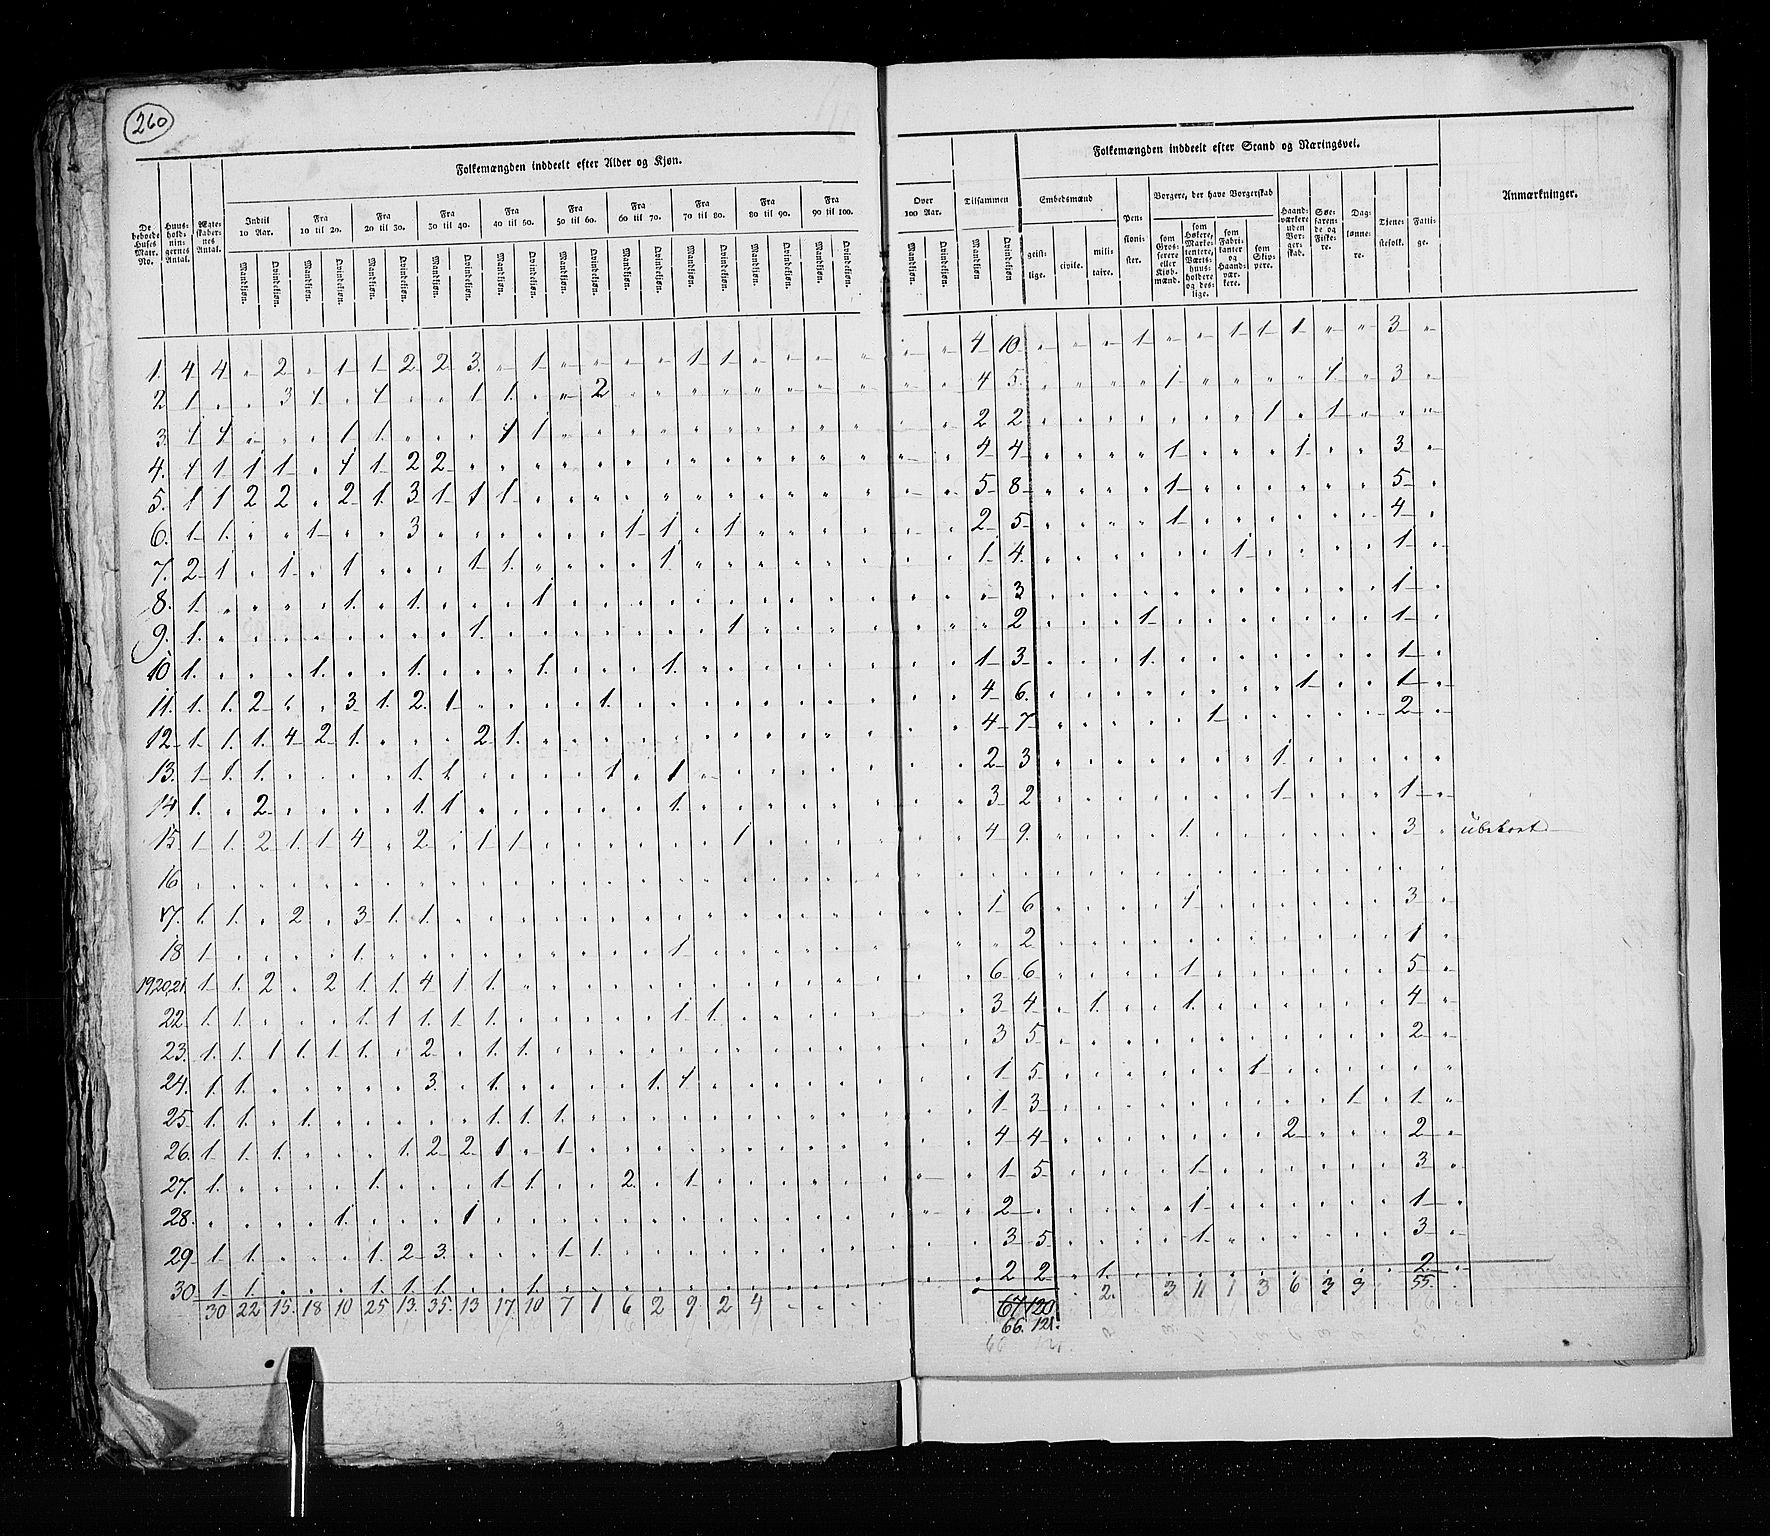 260
Folkemængden inddeelt efter Alder og Kjøn.
Folkemængden inddeelt efter Stand og Næringsvei.
De beboede Huses Matr. No.
Huusholdningernes Antal.
Ægteskabernes Antal.
Indtil 10 Aar.
Fra 10 til 20.
Fra 20 til 30.
Fra 30 til 40.
Fra 40 til 50.
Fra 50 til 60.
Fra 60 til 70.
Fra 70 til 80.
Fra 80 til 90.
Fra 90 til 100.
Over 100 Aar.
Tilsammen
Embedsmænd
Pensionister.
Borgere, der have Borgerskab
Haandværkere uden Borgerskab.
Søefarende og Fiskere.
Daglønnere.
Tjenestefolk.
Fattige.
Anmærkninger.
Mandkjøn. Qvindekjøn. Mandkjøn. Qvindekjøn. Mandkjøn. Qvindekjøn. Mandkjøn. Qvindekjøn. Mandkjøn. Qvindekjøn. Mandkjøn. Qvindekjøn. Mandkjøn. Qvindekjøn. Mandkjøn. Qvindekjøn. Mandkjøn. Qvindekjøn. Mandkjøn. Qvindekjøn. Mandkjøn. Qvindekjøn. Mandkjøn Qvindekjøn
geistlige. civile. militaire.
som Grosserere eller Kjøbmænd.
som Høkere, Marketentere, Værtshuusholdere og deslige.
som Fabrikanter og Haandværkere.
som Skippere.
1. 4 4 2 1 1 2 2 3 1 1 1 4 10 1 1 1 1 3
2 1 3 1 1 1 1 2 4 5 1 1 3
3. 1 1 1 1 1 1 2 2 1 1
4. 1 1 1 1 1 1 2 2 4 4 1 1 3
5. 1 1 2 2 2 1 3 1 1 1 5 8 1 5
6. 1 1 1 3 1 1 1 2 5 1 4
7. 2 1 1 1 1 1 1 1 4 1 1
8. 1 1 1 1 3 1
9. 1 1 1 2 1 1
10 1 1 1 1 1 1 3 1 1
11. 1 1 2 1 3 1 2 1 1 4 6 1 1
12 1 1 1 4 2 1 2 1 4 7 1 2
13. 1 1 1 1 1 1 1 2 3 1
14 1 2 1 1 1 3 2 1 1
15 1 1 2 1 1 4 2 1 1 1 4 9 1 3 ubeboet
16
17. 1 1 2 3 1 1 1 6 1 3
18 1 1 1 2 1
19.20.21. 1 1 2 2 1 1 4 1 1 6 6 1 5
22 1 1 1 1 1 1 1 1 1 3 4 1 1 4
23. 1 1 1 1 1 1 2 1 1 3 5 2
24. 1 1 3 1 1 1 1 5 1
25 1 1 1 1 1 1 1 3 1 1
26. 1 1 1 1 2 2 1 1 4 4 2 2
27. 1 1 1 1 2 1 1 5 1 3
28. 1 1 2 1 1
29 1 1 1 2 3 1 1 3 5 1 3
30 1 1 1 1 1 1 2 2 1 2
30 22 15. 18 10 25 13. 35. 13 17 10 7 1 6 2 9 2 4 67 120 2. 3 11 1 3 6 3 3 55.
66. 121.